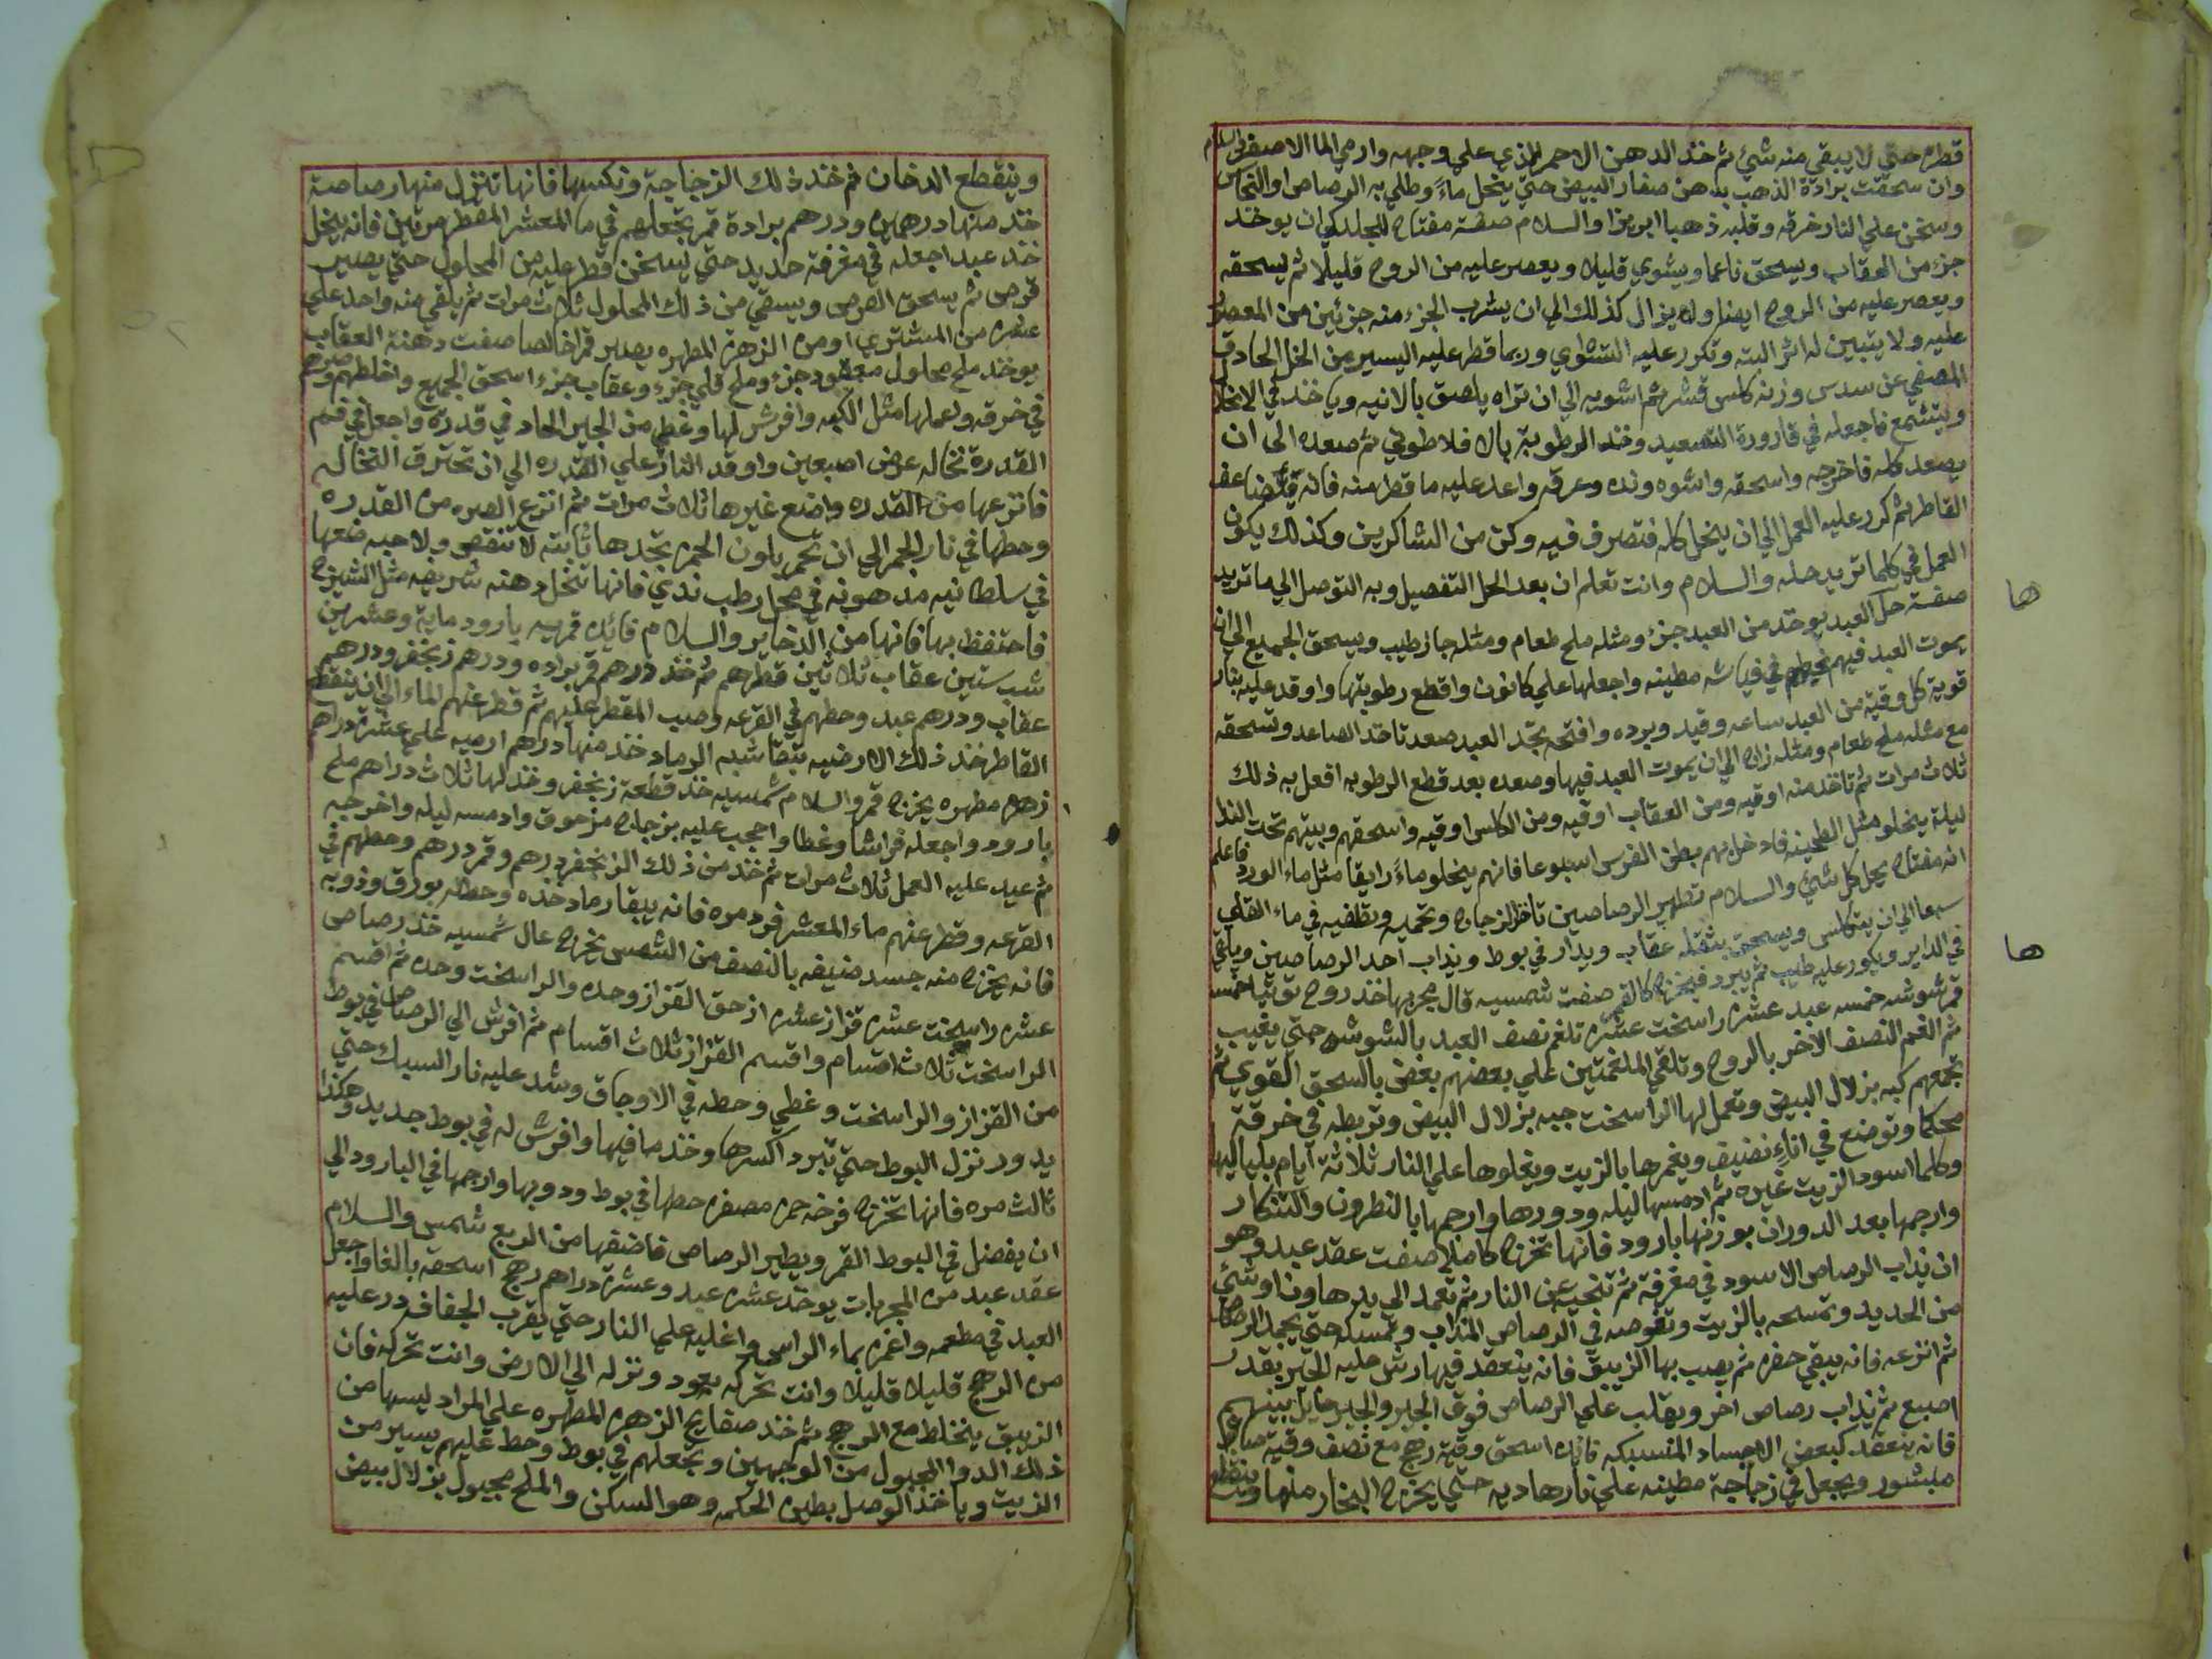 قطره حتي لا يبقي منه شئ ثم خذ الدهن الاحمر الذي علي وجهه وارمي الما الاصفر والسلام
وان سحقت برادة الذهب بدهن صفار البيض حتي ينحل ماءً وطلي به الرصاص او النحاس
وسخن علي النار خرقه وقلبه ذهبا ابريزا والسلام صفة مفتاح للجلدكي ان يوخذ
جزء من العقاب ويسحق ناعما ويشوي قليلا ويعصر عليه من الروح قليلا ثم يسحقه
ويعصر عليه من الروح ايضا ولا يزال كذلك الي ان يشرب الجزء منه جزئين من المعصور
عليه ولا يتبين له اثر البته وتكرر عليه التشاوي وربما قطر عليه اليسير من الخل الحادق
المصفي عن سدس وزنه كلس قشر ثم اشويه الي ان تراه ياصق بالانيه وياخذ في الانحلال
ويتشمع فاجعله في قارورة التصعيد وخذ الرطوبة بال افلاطوني ثم صعده الي ان
يصعد كله فاخرجه واسحقه واشوه ونده وعرقه واعد عليه ما قطر منه فانه يتضاعف
القاطر ثم كرر عليه العمل الي ان ينحل كله فتصرف فيه وكن من الشاكرين وكذلك يكون
العمل في كلما تريد حله والسلام وانت تعلم ان بعد الحل التفصيل وبه التوصل الي ما تريد
صفة حل العبد يوخذ من العبد جزء ومثله ملح طعام ومثله جاز طيب ويسحق الجميع الي ان
يموت العبد فيهم في فياشه مطينه واجعلها علي كانون واقطع رطوبتها واوقد عليه بنار
قوية كل وقية من العبد ساعه وقيد وبرده وافتحه تجد العبد صعد تاخذ الصاعد وتسحقه
مع مثله ملح طعام ومثله زاج الي ان يموت العبد فيها وصعده بعد قطع الرطوبه افعل به ذلك
ثلاث مرات ثم تاخذ منه اوقيه ومن العقاب اوقيه ومن الكلس اوقيه واسحقهم وبيتهم تحت الندا
ليلة ينحلو مثل الطحينه فادخل بهم بطن الفرس اسبوعا فانهم ينحلو ماءً رايقا مثل ماء الورد فاعلم
انه مفتاح يحل كل شئ والسلام تطهير الرصاصين تاخذ الزجاج وتحميه وتطفيه في ماء القلي
سبعا الي ان يتكلس ويسحق بثقله عقاب ويدار في بوط ويذاب احد الرصاصين ويلقي
في الداير ويكور عليه طيب ثم يبرد فيخرج كالقمر صفت شمسيه قال مجربها خذ روح توتيا خمسه
قمر شوشه خمسه عبد عشره راسخت عشره تلغم نصف العبد بالشوشه حتي يغيب
ثم الغم النصف الاخر بالروح وتلقي الملغمتين علي بعضهم بعض بالسحق القوي ثم
تجمعهم كبه بزلال البيض وتعمل لها الراسخت جبه بزلال البيض وتربطه في خرقة
محكما وتوضع في اناء نضيف ويغمرها بالزيت ويغلوها علي النار ثلاثة ايام بلياليها
وكلما اسود الزيت غيره ثم ادمسها ليله ودورها وارجمها بالنطرون والتنكار
وارجمها بعد الدوران بوزنها بارود فانها تخرج كاملا صفت عقد عبد وهو
ان يذاب الرصاص الاسود في مغرفة ثم تنحيه عن النار ثم تعمد الي يد هاون او شئ
من الحديد وتمسحه بالزيت وتغوصه في الرصاص المذاب وتمسكه حتي يجمد الرصاص
ثم انزعه فانه يبقي حفره ثم يصب بها الزيبق فانه ينعقد فيها رش عليه الجير بقدر
اصبع ثم يذاب رصاص اخر ويقلب علي الرصاص فوق الجير والجير حايل بينهم
فانه ينعقد كبعض الاجساد المنسبكه فائده اسحق وقية رهج مع نصف وقية صابون
مبشور ويجعل في زجاجة مطينه علي نار هاديه حتي يخرج البخار منها وينقطع
ها
ها
وينقطع الدخان ثم خذ ذلك الزجاجة وتكسرها فانها تنزل منها رصاصة
خذ منها درهمين ودرهم برادة قمر تجعلهم في ما المعشر المقطر مرتين فانه ينحل
خذ عبد اجعله في مغرفة حديد حتي يسخن قطر عليه من المحلول حتي يصير
قرص ثم يسحق القرص ويسقي من ذلك المحلول ثلاث مرات ثم يلقي منه واحد علي
عشره من المشتري او من الزهره المطهره يصير قمرا خالصا صفت دهنة العقاب
يوخذ ملح محلول معقود جزء وملح قلي جزء وعقاب جزء اسحق الجميع واخلطهم وصرهم
في خرقه واعملها مثل الكبه وافرش لها وغطي من الجير الحاد في قدره واجعل في فم
القدرة نخاله عرض اصبعين واوقد النار علي القدره الي ان تحترق النخاله
فانزعها من القدره واضع غيرها ثلاث مرات ثم انزع الصره من القدره
وحطها في نار الجمر الي ان تحمر بلون الجمر تجدها ثابته لا تنقص ولا حبه ضعها
في سلطانيه مدهونه في محل رطب ندي فانها تنحل دهنه شريفه مثل الشيرج
فاحتفظ بها فانها من الذخاير والسلام فائده قمريه بارود ماية وعشرين
شب ستين عقاب ثلاثين قطرهم ثم خذ درهم قمر براده ودرهم زنجفر ودرهم
عقاب ودرهم عبد وحطهم في القرعه وصب المقطر عليهم ثم قطر عنهم الماء الي ان ينقطع
القاطر خذ ذلك الارضيه تبقا شبه الرماد خذ منها درهم ارميه علي عشرة دراهم
زهره مطهره يخرج قمر والسلام شمسيه خذ قطعة زنجفر وخذ لها ثلاث دراهم ملح
بارود واجعله فراشا وغطا واحجب عليه بزجاج مزحوق وادمسه ليله واخرجه
ثم عيد عليه العمل ثلاث مرات ثم خذ من ذلك الزنجفر درهم وقمر درهم وحطهم في
القرعه وقطر عنهم ماء المعشر فرد مره فانه يبقا رماد خذه وحط له بورق وذوبه
فانه يخرج منه جسد ضيفه بالنصف من الشمس يخرج عال شمسيه خذ رصاص
عشره راسخت عشره قزاز عشره ازحق القزاز وحده والراسخت وحده ثم اقسم
الراسخت ثلاث اقسام واقسم القزاز ثلاث اقسام ثم افرش الي الرصاص في بوط
من القزاز والراسخت وغطي وحطه في الاوجاق وشد عليه نار السبك حتي
يدور نزل البوط حتي تبرد اكسرها وخذ ما فيها وافرش له في بوط جديد وهكذا
ثالث مره فانها تخرج فرخه حمره مصفره حطها في بوط ودوبها وارجمها في البارود الي
ان يفضل في البوط القمر ويطير الرصاص فاضفها من الربع شمس والسلام
عقد عبد من المجربات يوخذ عشره عبد وعشرة دراهم رهج اسحقه بالغا واجعل
العبد في مطعمه واغمره بماء الراسخت واغليه علي النار حتي يقرب الجفاف در عليه
من الرهج قليلا قليلا وانت تحركه بعود ونزله الي الارض وانت تحركه فان
الزيبق ينخلط مع الرهج ثم خذ صفايح الزهره المطهره علي المراد لبسها من
ذلك الدوا المجبول من الوجهين وتجعلهم في بوط وحط عليهم يسير من
الزيت وياخذ الوصل بطين الحكمه وهو السكن والملح مجبول بزلال بيض